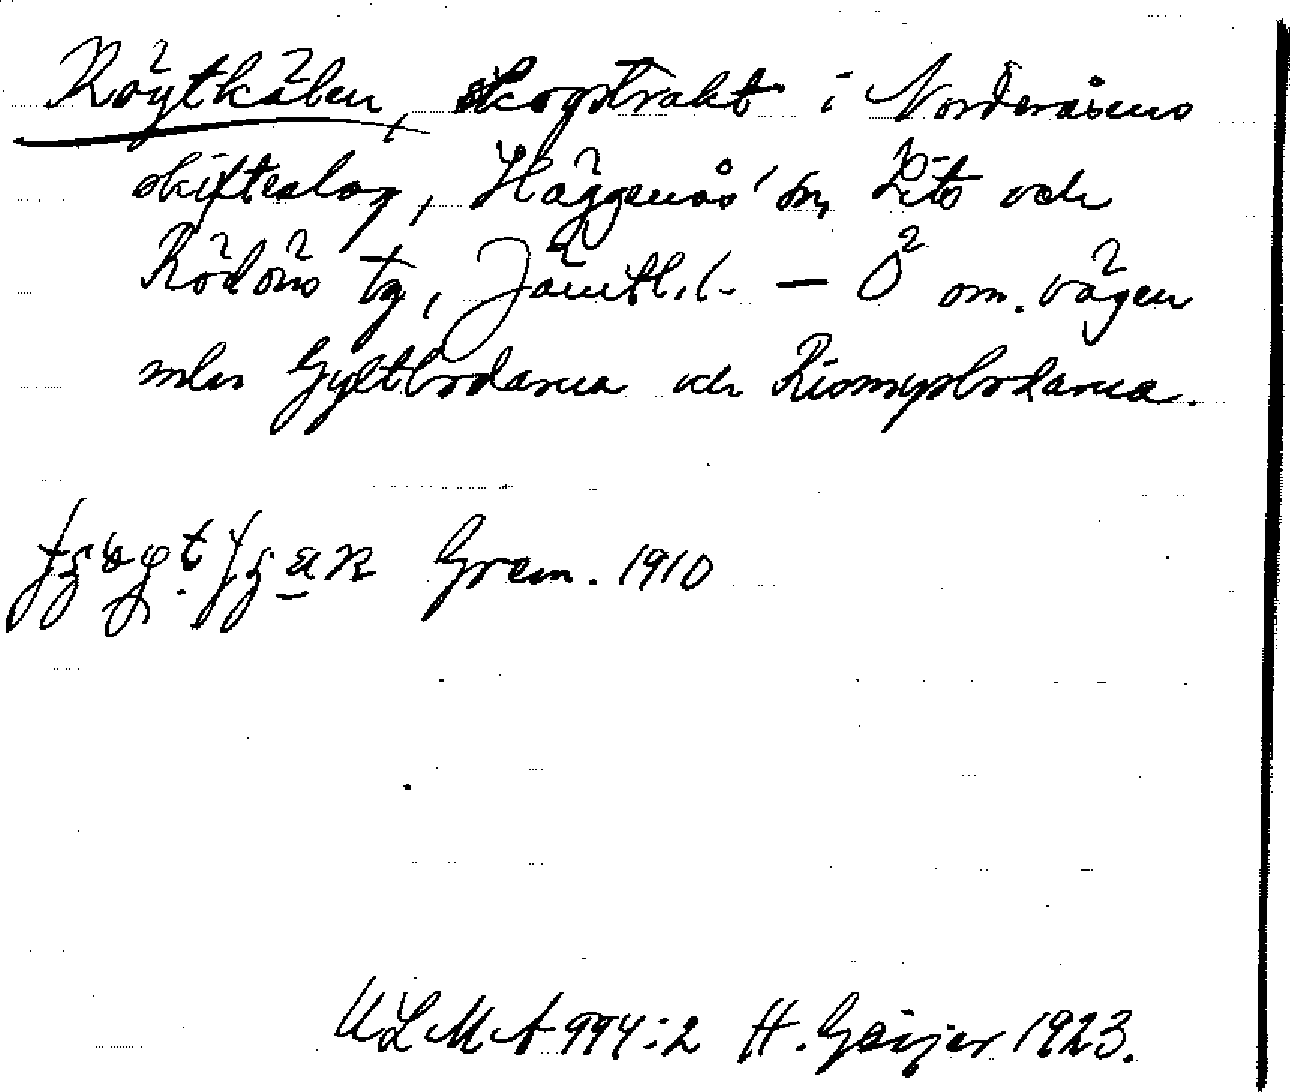 Köytkälen, skogstrakt i Norderåsens
skifteslag, Häggenås' sn, Lits och
Rödöns tg, Jämtl. l. – Ö om. vägen
mlm Gyltbodarna och Rismyrbodarna.
Grem. 1910
ULMA 994:2 H. Geijer 1923.